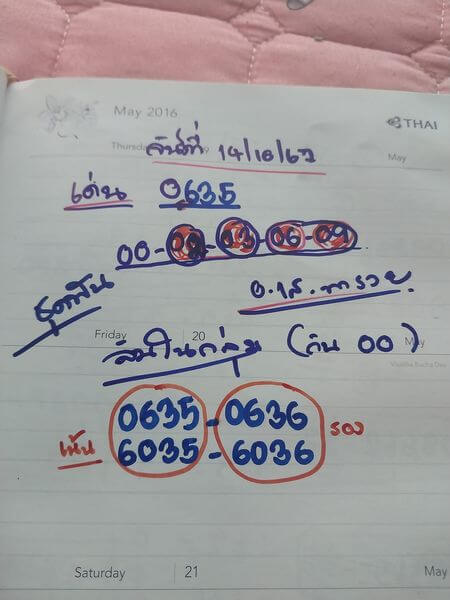 May 2016
THAI
Thursday
May
วันที่ 14/10/63
เด่น 0635
00-01-03-06-09
ชุดฟัน
อ.1ส.พารวย
Friday 20 May
Visakha Bucha Day
ลับในกลุ่ม (กัน 00)
0635-0636
เน้น 6035-6036 รอง
Saturday 21 May